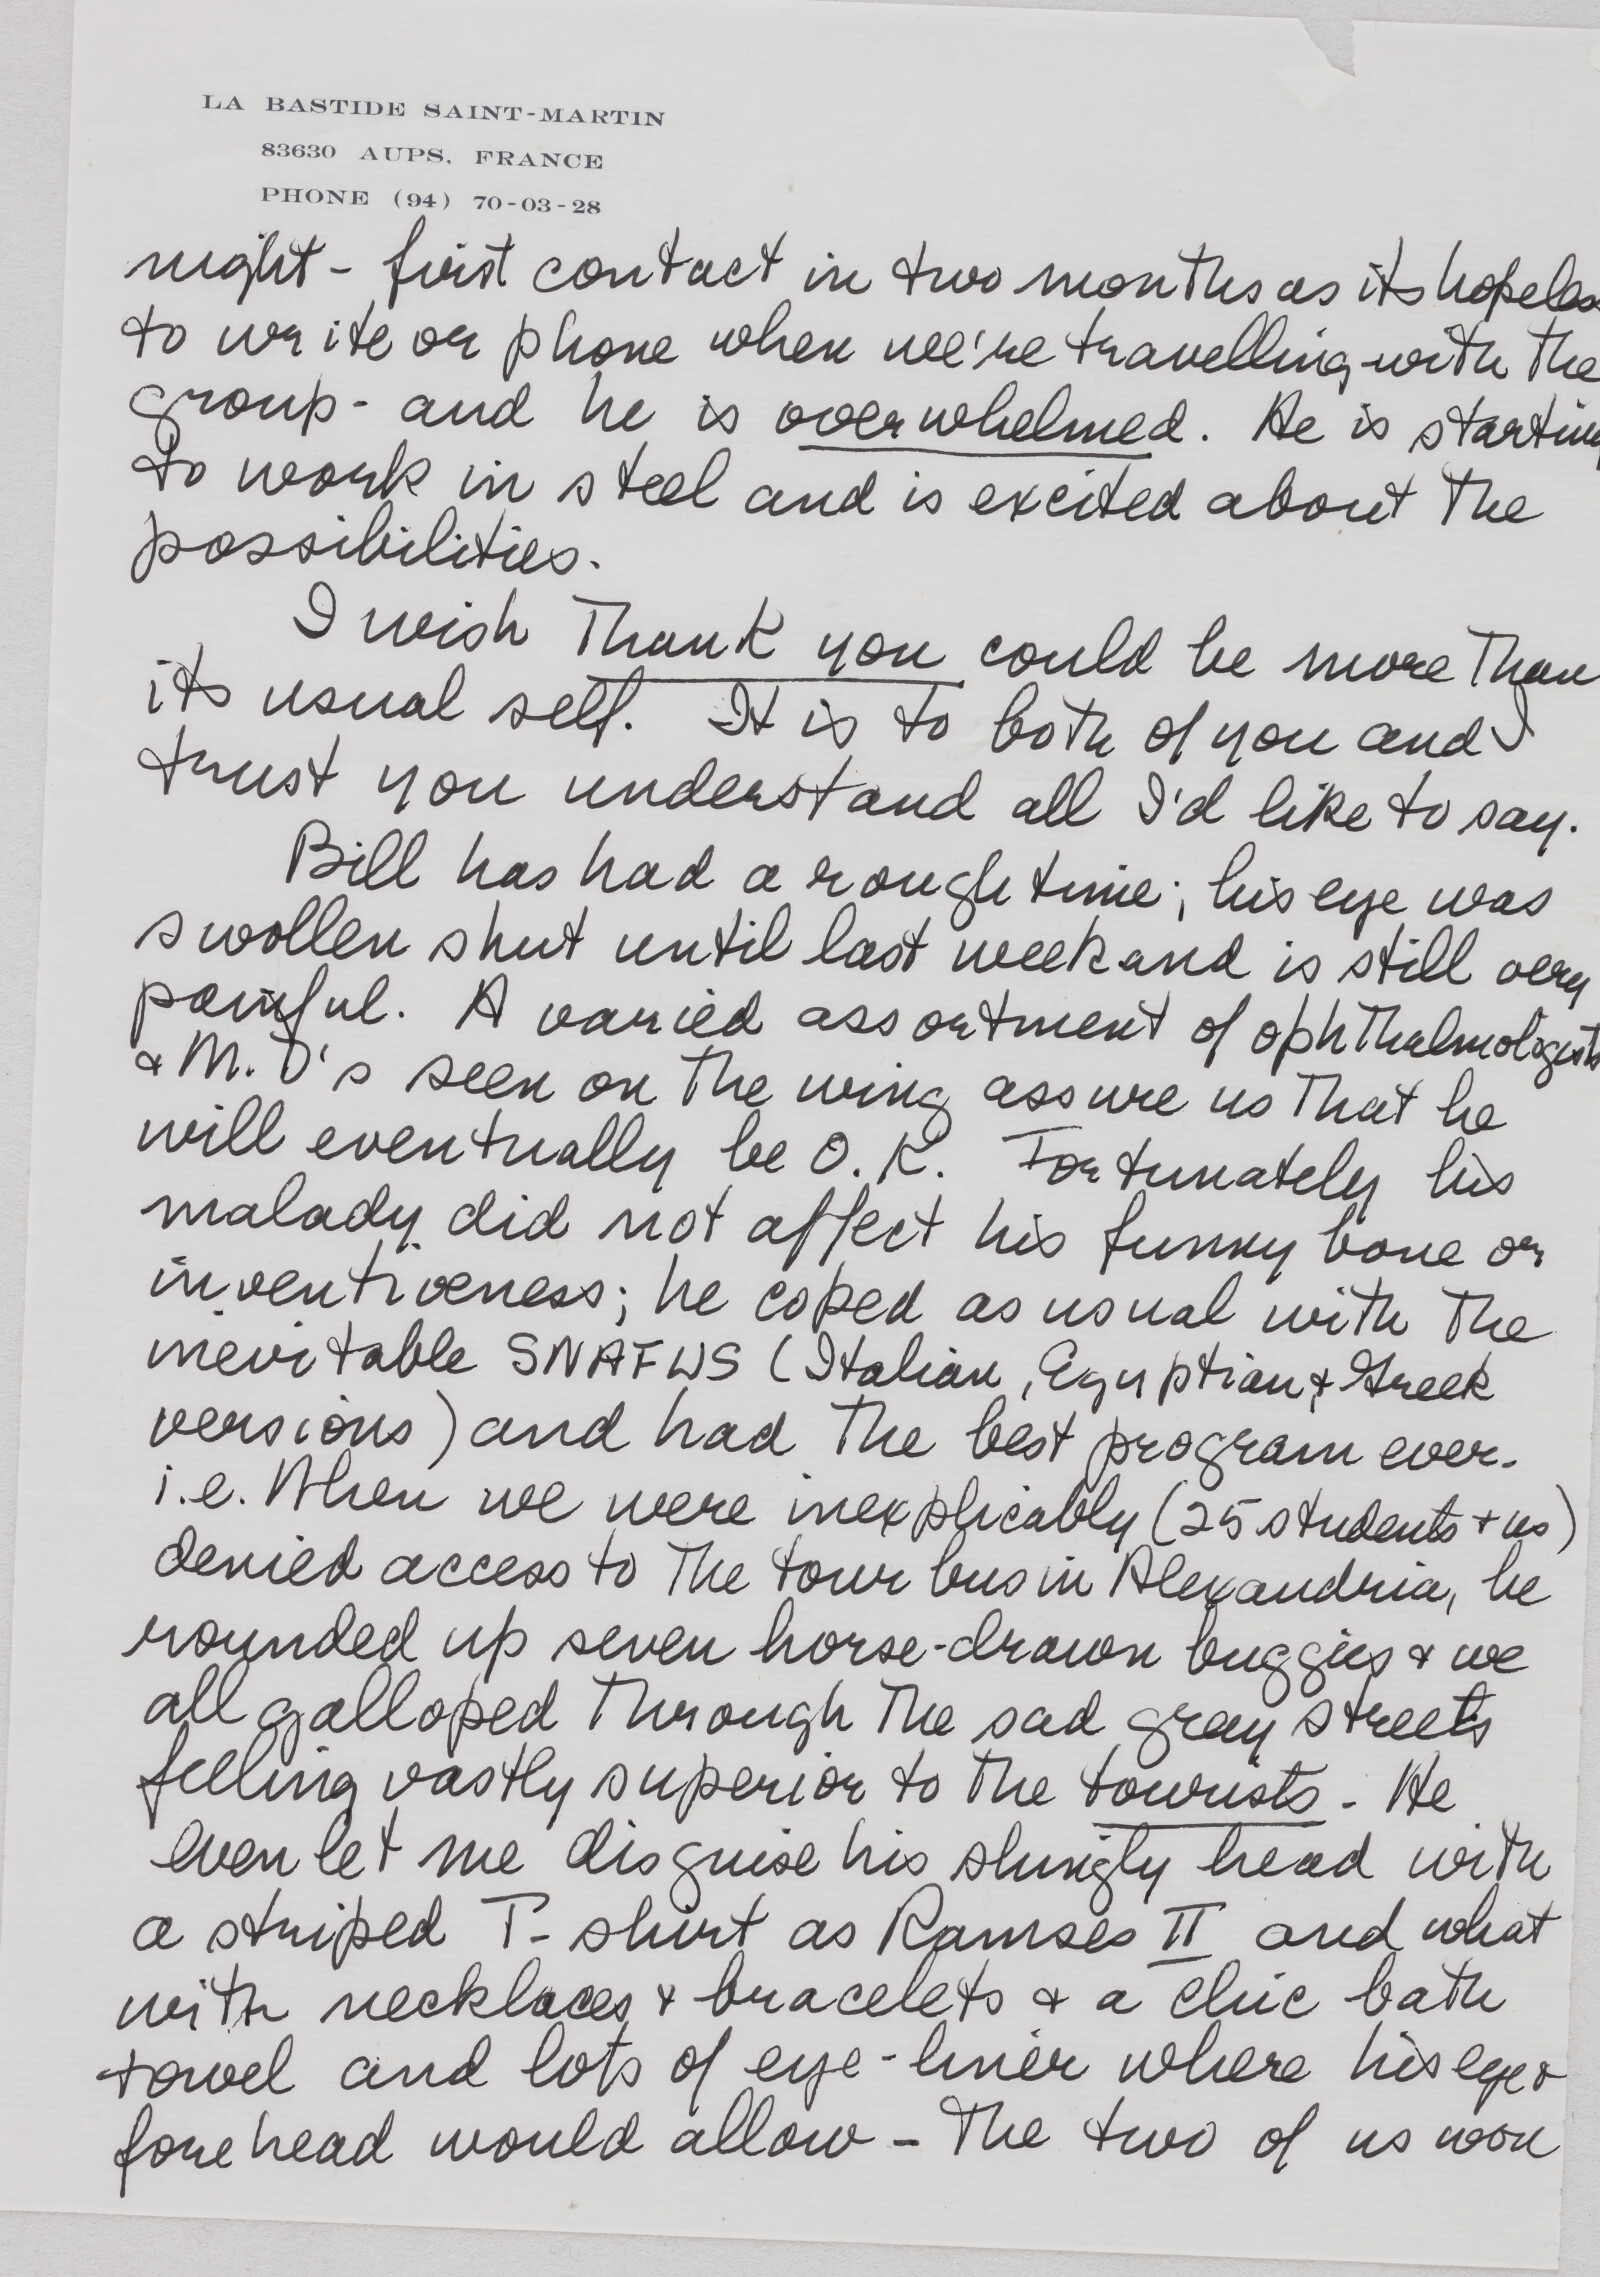 LA BASTIDE SAINT-MARTIN
83630 AUPS, FRANCE
PHONE (94) 70-03-28
night - first contact in two months as its hopeless
to write or phone when we're travelling with the
group - and he is overwhelmed. He is starting
to work in steel and is excited about the
possibilities.
I wish Thank you could be more than
its usual self. It is to both of you and I
trust you understand all I'd like to say.
Bill has had a rough time; his eye was
swollen shut until last week and is still very
painful. A varied assortment of ophthalmologists
& M.D's seen on the wing assure us that he
will eventually be O.K. Fortunately his
malady did not affect his funny bone or
inventiveness; he coped as usual with the
inevitable SNAFUS (Italian, Egyptian & Greek
versions) and had the best program ever.
i.e. When we were inexplicably (25 students + us)
denied access to the tour bus in Alexandria, he
rounded up seven horse-drawn buggies & we
all galloped through the sad gray streets
feeling vastly superior to the tourists. He
even let me disguise his shingly head with
a striped T-shirt as Ramses II and what
with necklaces & bracelets & a chic bath
towel and lots of eye-liner where his eye &
forehead would allow - The two of us won